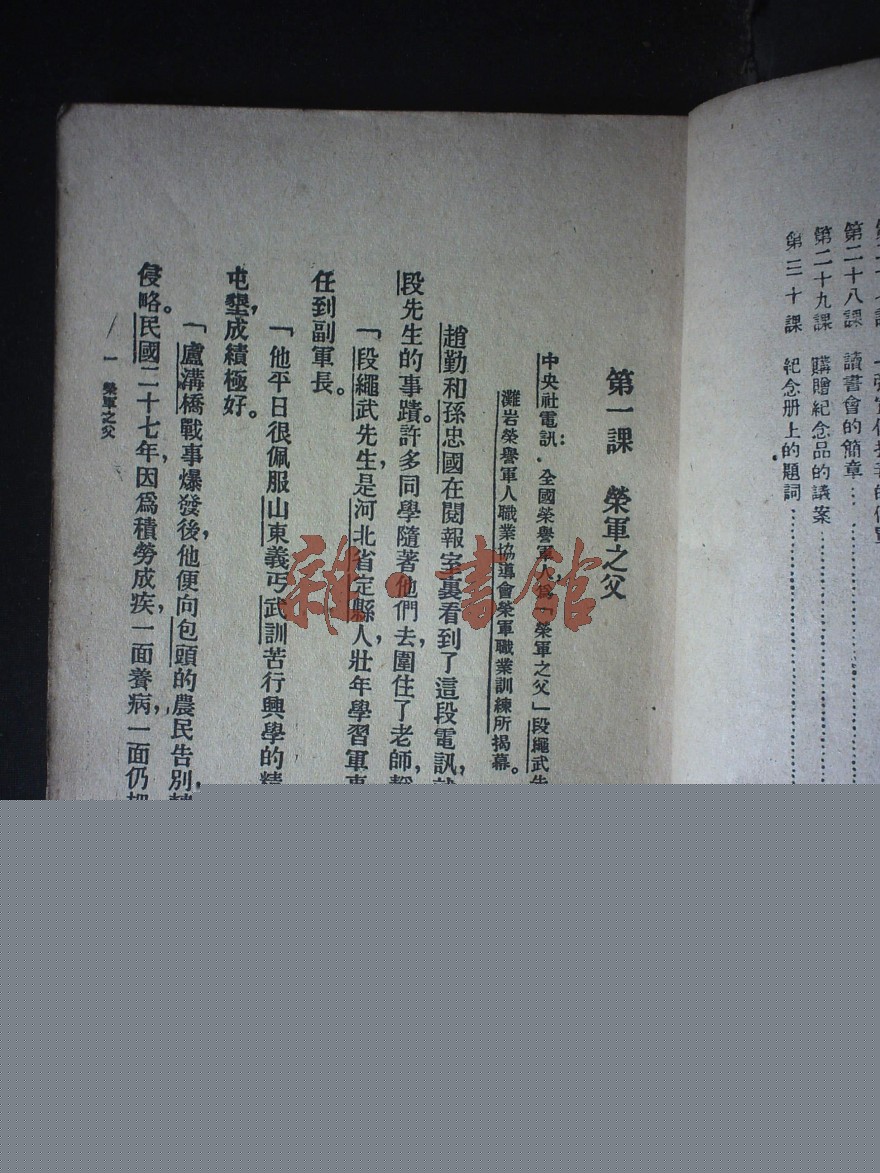 第二十八課　讀書會的簡章…
第二十九課　購贈紀念品的議案…
第三十課　紀念册上的題詞…
第一課　榮軍之父
中央社電訊：全國榮譽軍人爲「榮軍之父」段繩武
灘岩榮譽軍人職業協導會榮軍職業訓練所揭幕。
趙勤和孫忠國在閱報室裏看到了這段電訊，
段先生的事蹟。許多同學隨著他們去，圍住了老師，
「段繩武先生，是河北省定縣人，壯年學習軍
任到副軍長。
「他平日很佩服山東義丐武訓苦行興學的精
屯墾，成績極好。
「盧溝橋戰事爆發後，他便向包頭的農民告別，
侵略。民國二十七年，因爲積勞成疾，一面養病，一面仍
一　榮軍之父
雜·書館